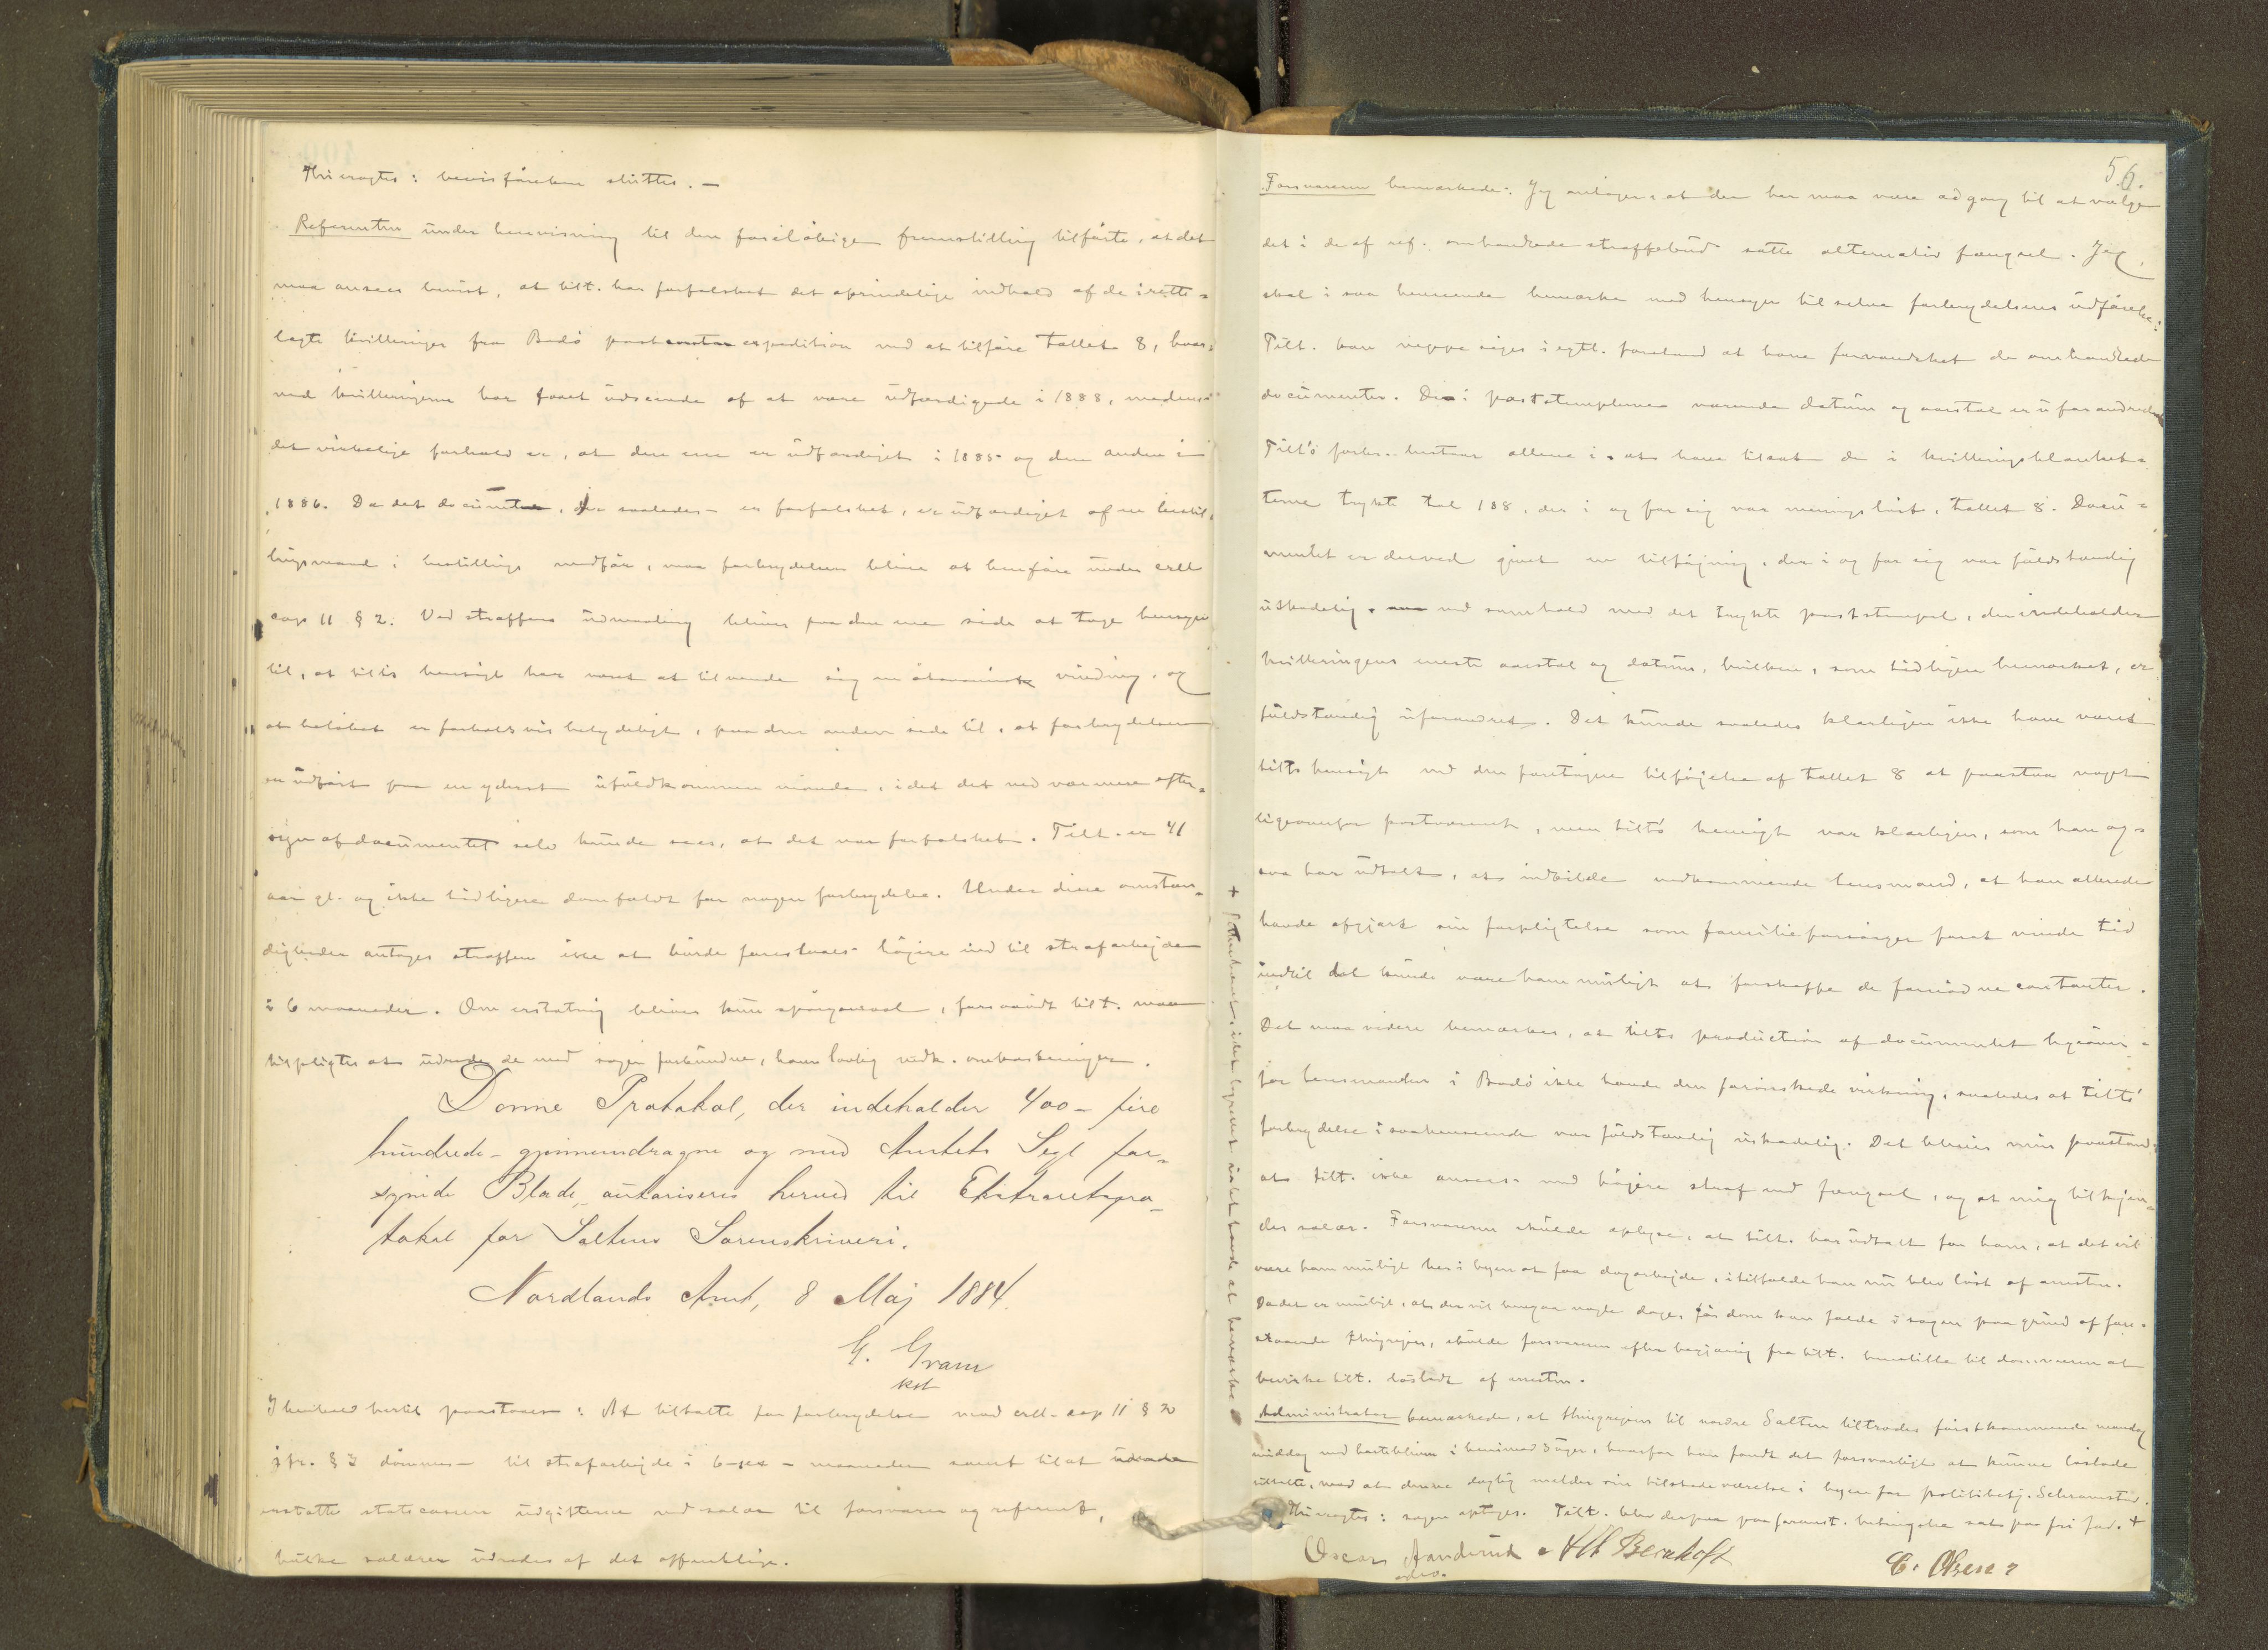 Thi eragtes: bevisførelsen sluttes. —
Referenten under henvisning til den foreløbige fremstilling tilførte, at det
maa ansees bevist, at tilt. har forfalsket det oprindelige indhold af de irette-
lagte kvitteringer fra Bodø post expedition ved at tilføie tallet 8, hvor-
ved kvitteringerne har faaet udseende af at være udfærdigede i 1888, medens
det virkelige forhold er, at den ene er udfærdiget i 1885 og den anden i
1886. Da det document, der saaledes er forfalsket, er udfærdiget af en bestil-
lingsmand i bestillings medfør, maa forbrydelsen blive at henføre under crll
cap 11 § 2. Ved straffens udmaaling bliver paa den ene side at tage hensyn
til, at tilt's hensigt har været at tilvende sig en økonomisk vinding, og
at beløbet er forholdsvis betydeligt, paa den anden side til, at forbrydelsen
er udført paa en yderst ufuldkommen maade, idet det ved nærmere efter-
syn af documentet selv kunde sees, at det var forfalsket. Tilt. er 41
aar gl. og ikke tidligere domfældt for nogen forbrydelse. Under disse omstæn-
digheder antages straffen ikke at burde foreslaaes høiere end til strafarbejde
i 6 maaneder. Om erstatning bliver kun spørgsmaal, forsaavidt tilt. maa
tilpligtes at udrede de med sagen forbundne, ham lovlig vedk. omkostninger.
Denne Protokol, der indeholder 400 - fire
hundrede - gjennemdragne og med Amtets Segl for-
synede Blade, autoriseres herved til Ekstraretspro-
tokol for Saltens Sorenskriveri.
Nordlands Amt, 8 Maj 1884.
G. Gram
kst
I henhold hertil paastaaes: At tiltalte for forbrydelse mod crll. cap 11 § 2
jfr. § 3 dømmes til strafarbejde i 6 - sex - maaneder samt til at
erstatte statscassen udgifterne ved salær til forsvarer og referent,
hvilke salærer udredes af det offentlige.
56.
Forsvareren bemærkede: Jeg antager, at der her maa være adgang til at vælge
det i de af ref. omhandlede straffebud satte alternativ fængsel. Jeg
skal i saa henseende bemærke med hensyn til selve forbrydelsens udførelse:
Tilt. kan neppe siges i egtl. forstand at have forvansket de omhandlede
documenter. Det i poststemplerne værende datum og aarstal er uforandret.
Tilt's forbr. bestaar allene i at have tilsat de i kvitteringsblanket-
terne trykte tal 188, der i og for sig var meningsløst, tallet 8. Docu-
mentet er derved givet en tilføjning, der i og for sig var fuldstændig
uskadelig ved samhold med det trykte poststempel, der indeholder
kvitteringens eneste aarstal og datum, hvilken, som tidligere bemærket, er
fuldstændig uforandret. Det kunde saaledes klarligen ikke have været
tilts hensigt ved den foretagne tilføjelse af tallet 8 at paastaa noget
ligeoverfor postvæsenet, men tilt's hensigt var klarligen, som han og-
saa har udtalt, at indbilde vedkommende lensmand, at han allerede
havde afgjort sin forpligtelse som familieforsørger for at vinde tid
indtil det kunde være ham muligt at forskaffe de fornødne contanter.
Det maa videre bemærkes, at tilts production af documentet ligeover-
for lensmanden i Bodø ikke havde den forønskede virkning, saaledes at tilts'
forbrydelse i saa henseende var fuldstændig uskadelig. Det bliver min paastand:
at tilt. ikke ansees med høiere straf end fængsel, og at mig tilkjen-
des salær. Forsvareren skulde oplyse, at tilt. har udtalt for ham, at det vil
være ham muligt her i byen at faa dagarbejde, i tilfælde han nu blev løst af arresten.
Da det er muligt, at der vil hengaa nogle dager før dom kan falde i sagen paa grund af fore-
staaende thingrejser, skulde forsvareren efter begjæring fra tilt. henstille til domsmanden at
bevirke tilt. løsladt af arresten.
Administrator bemærkede, at thingrejsen til nordre Salten tiltrædes førstkommende mandag
middag med , hvorfor han fandt det forsvarligt at kunne løslade
tiltalte, mod at denne daglig melder sin tilstedeværelse i byen for politibetj. Schramstad.
Thi eragtes: sagen optages. Tilt. blev derpaa paa foranst. betingelse sat paa fri fod. +
Oscar Aanderud A M Bernhoft C. Olsen
+ idet actoratet intet havde at bemærke